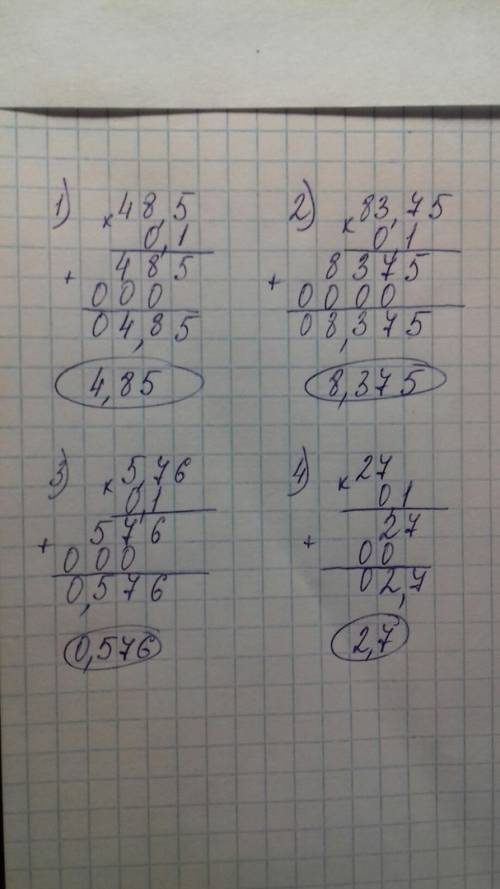 1) × 48,5
0,1
+ 485
000
04,85
4,85
2) × 83,75
0,1
+ 8375
0000
08,375
8,375
3) × 5,76
0,1
+ 576
000
0,576
0,576
4) × 27
01
+ 27
00
02,7
2,7